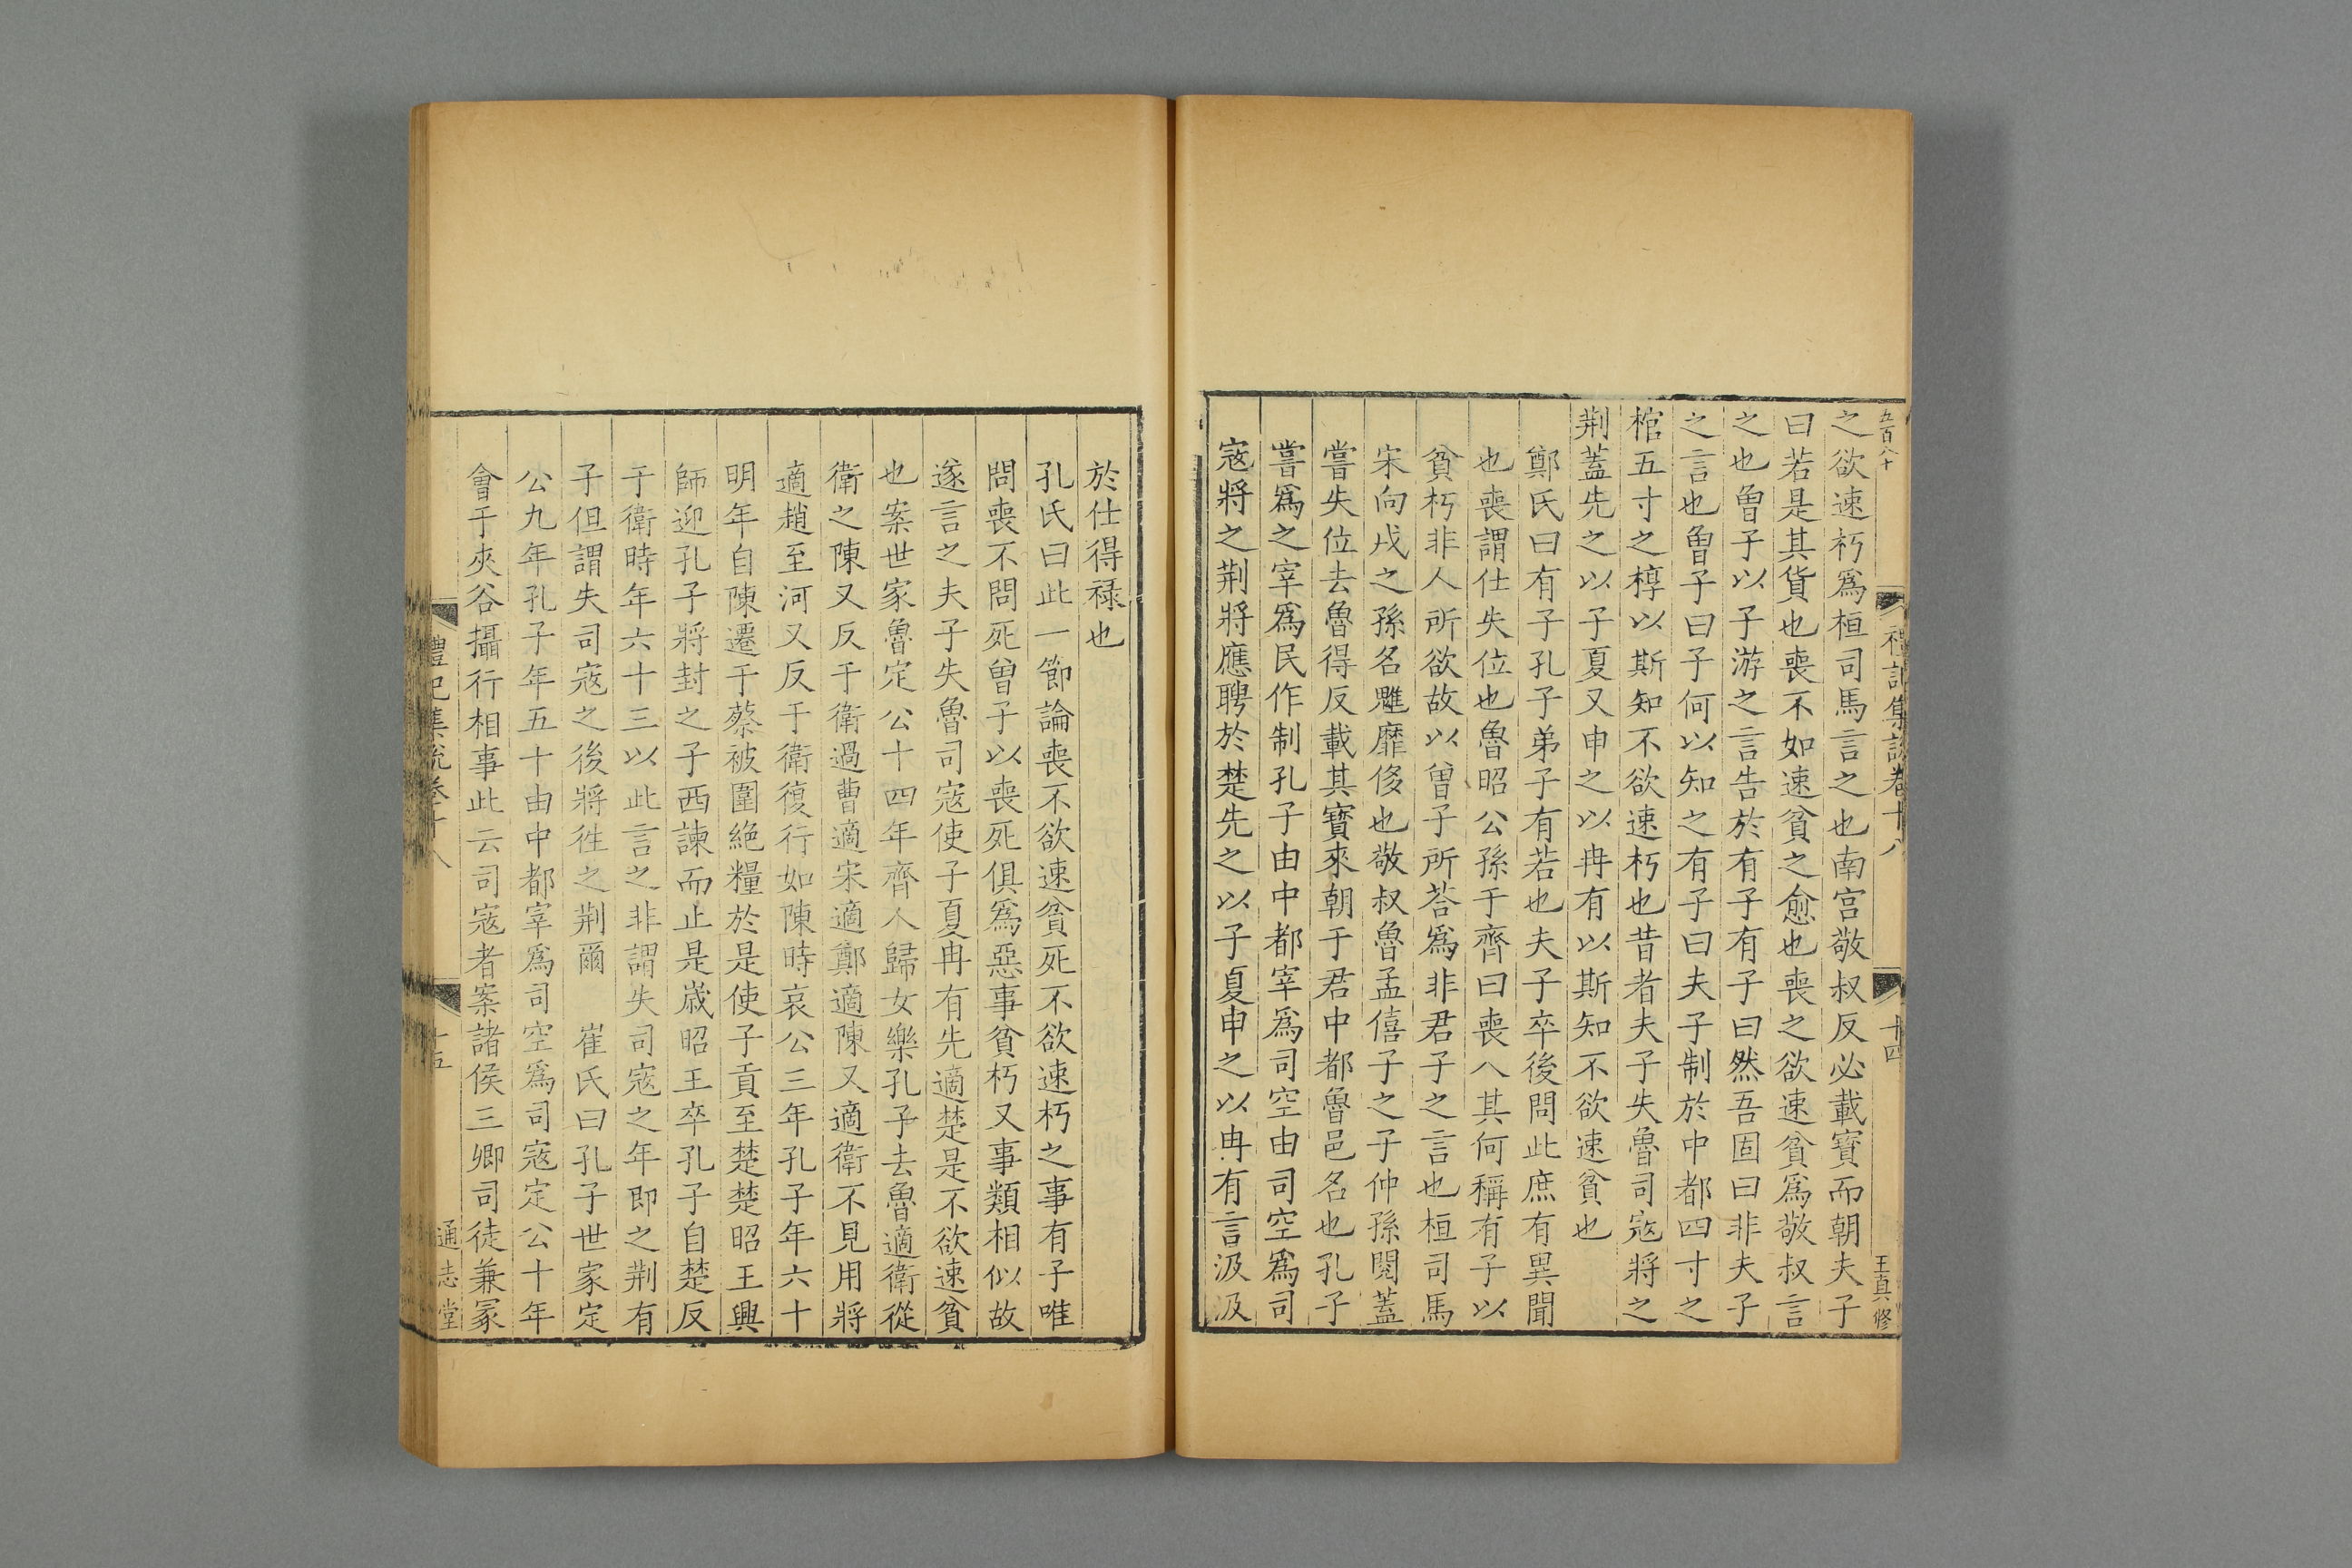 五百八十
禮記集說卷十八
十四
王真修
之欲速朽爲桓司馬言之也南宫敬叔反必載寶而朝夫子
曰若是其貨也喪不如速貧之愈也喪之欲速貧爲敬叔言
之也曾子以子游之言告於有子有子曰然吾固曰非夫子
之言也曾子曰子何以知之有子曰夫子制於中都四寸之
棺五寸之椁以斯知不欲速朽也昔者夫子失魯司寇將之
荆蓋先之以子夏又申之以冉有以斯知不欲速貧也
鄭氏曰有子孔子弟子有若也夫子卒後問此庶有異聞
也喪謂仕失位也魯昭公孫于齊曰喪人其何稱有子以
貧朽非人所欲故以曾子所荅爲非君子之言也桓司馬
宋向戌之孫名魋靡侈也敬叔魯孟僖子之子仲孫閱蓋
嘗失位去魯得反載其寶來朝于君中都魯邑名也孔子
嘗爲之宰爲民作制孔子由中都宰爲司空由司空爲司
寇將之荆將應聘於楚先之以子夏申之以冉有言汲汲
於仕得祿也
孔氏曰此一節論喪不欲速貧死不欲速朽之事有子唯
問喪不問死曾子以喪死俱爲惡事貧朽又事類相似故
遂言之夫子失魯司寇使子夏冉有先適楚是不欲速貧
也案世家魯定公十四年齊人歸女樂孔子去魯適衛從
衛之陳又反于衛過曹適宋適鄭適陳又適衛不見用將
適趙至河又反于衛復行如陳時哀公三年孔子年六十
明年自陳遷于蔡被圍絶糧於是使子貢至楚楚昭王興
師迎孔子將封之子西諫而止是歲昭王卒孔子自楚反
于衛時年六十三以此言之非謂失司寇之年即之荆有
子但謂失司寇之後將徃之荆爾　崔氏曰孔子世家定
公九年孔子年五十由中都宰爲司空爲司寇定公十年
會于夾谷攝行相事此云司寇者案諸侯三卿司徒兼冢
禮記集說卷十八
十五
通志堂